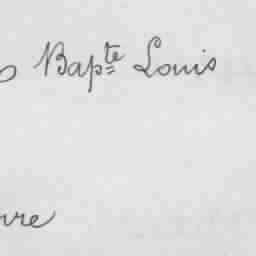 Bapte Louis